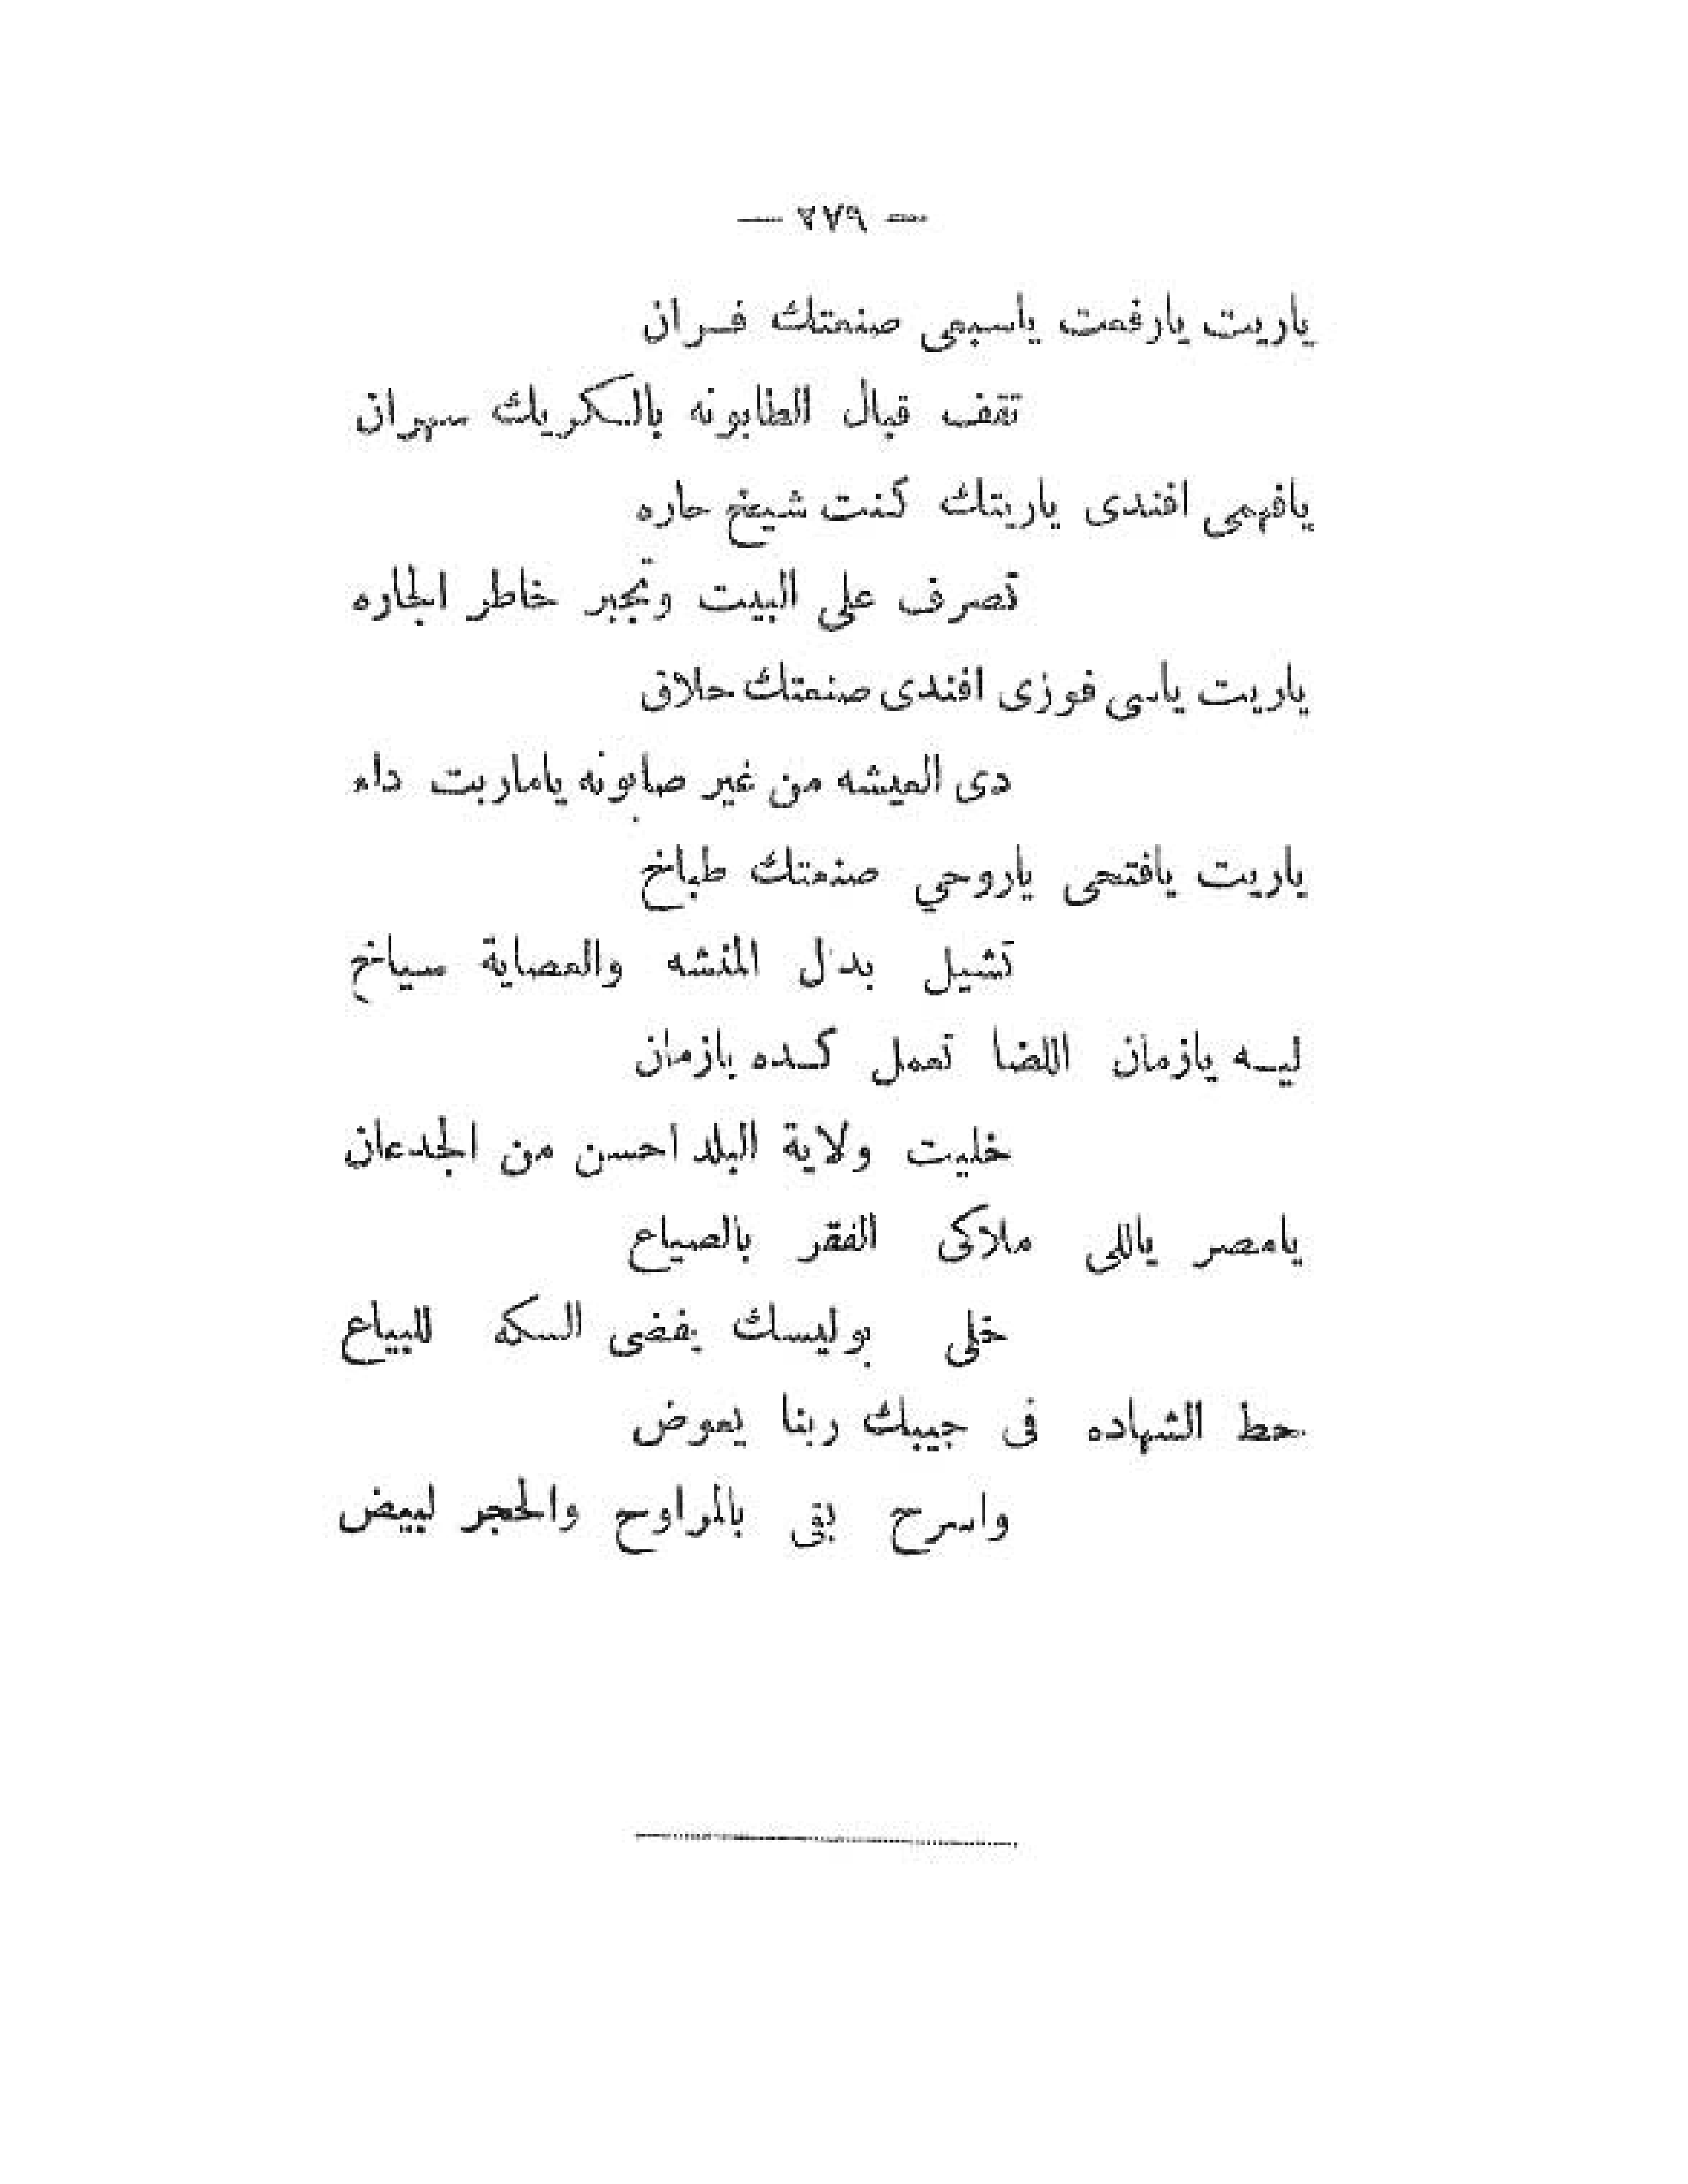 — ٢٧٩ —
ياريت يارفعت ياسبعى صنعتك فران
تقف قبال الطابونه بالكريك سهران
يافهمى افندى ياريتك كنت شيخ حاره
تصرف على البيت وتجبر خاطر الجاره
ياريت ياسى فوزى افندى صنعتك حلاق
دى العيشه من غير صابونه ياماربت داء
ياريت يافتحى ياروحي صنعتك طباخ
تشيل بدل المنشه والعصاية سياخ
ليه يازمان اللضا تعمل كده يازمان
خليت ولاية البلد احسن من الجدعان
يامصر ياللى ملاكى الفقر بالصياع
خلى بوليسك يفضى السكه للبياع
حط الشهاده فى جيبك ربنا يعوض
واسرح بقى بالمراوح والحجر لبيض